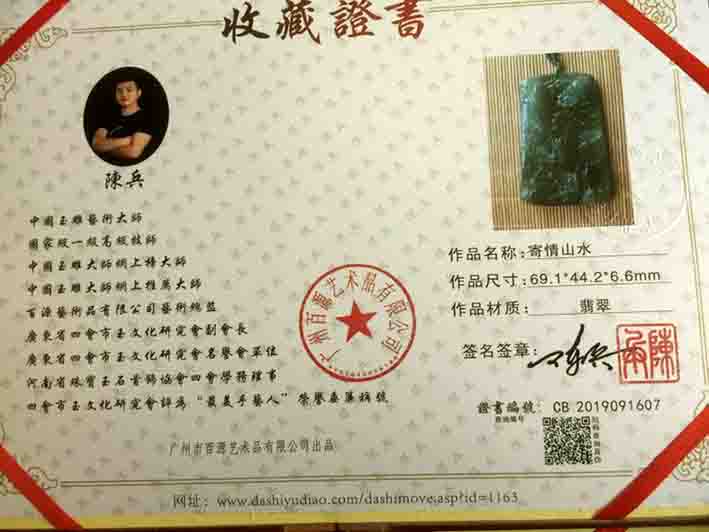 收藏證書
陳兵
中國玉雕藝術大師
國家級一級高級技師
中國玉雕大師網上榜大師
中國玉雕大師網上推薦大師
百源藝術品有限公司藝術總監
廣東省四會市玉文化研究會副會長
廣東省四會市玉文化研究會名譽會單位
河南省珠寶玉石首飾協會四會學務理事
四會市玉文化研究會評為“最美手藝人”榮譽
广州市百源艺术品有限公司出品
广州百源艺术品有限公司
作品名称: 寄情山水
作品尺寸: 69.1*44.2*6.6mm
作品材质: 翡翠
签名签章:
陳兵
證書編號: CB 2019091607
查询编号
网址: www.dashiyudiao.com/dashimove.asp?id=1163